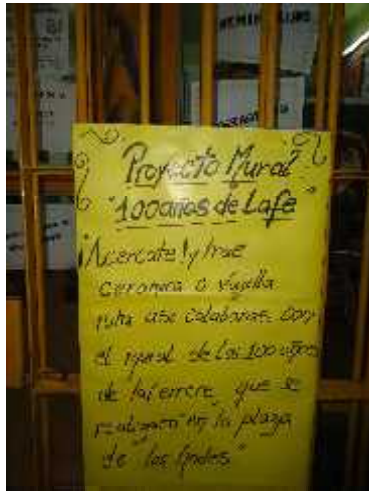 Proyecto Mural
"100 años de Lafe"
¡Acercate! y trae
ceramica o vajilla
rota asi colaboras con
el mural de los 100 años
de laferrere, que se
realizará en la plaza
de "los Andes"